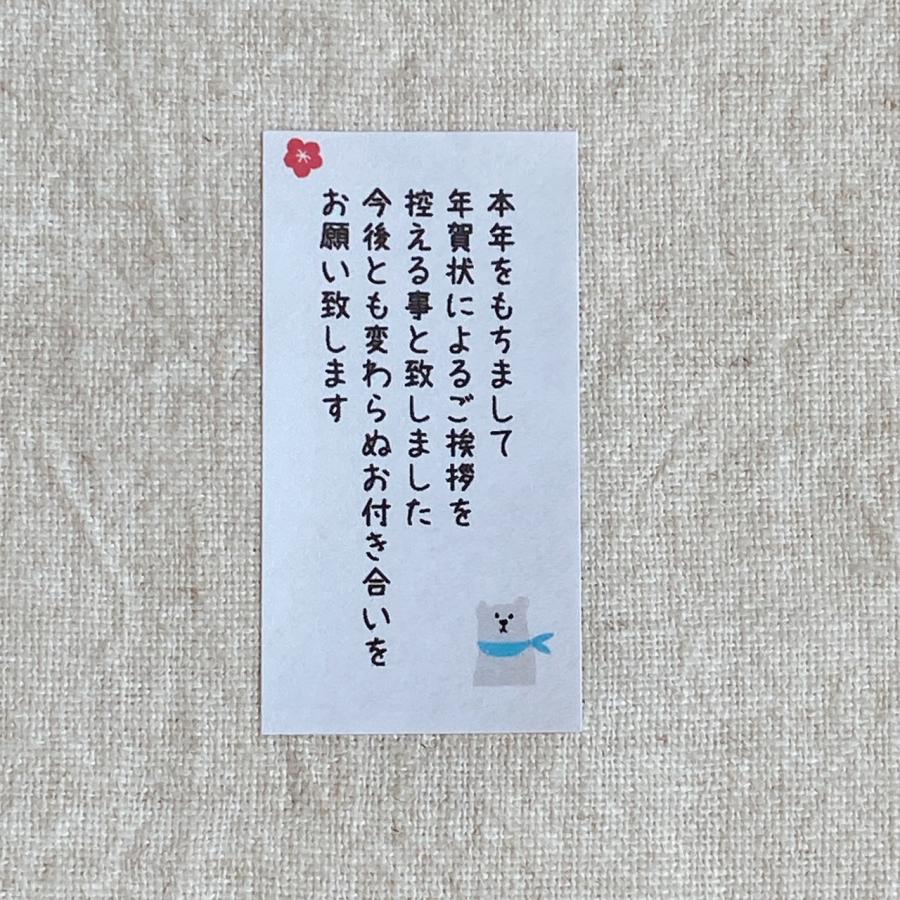 本年をもちまして
年賀状によるご挨拶を
控える事と致しました
今後とも変わらぬお付き合いを
お願い致します